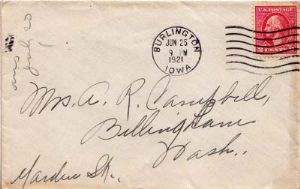 BURLINGTON
JUN 25
9 PM
1921
IOWA
U.S. POSTAGE
2 CENTS 2
Mrs. A. R. Campbell,
Bellingham
Wash.
Marden St.
ans
July 20